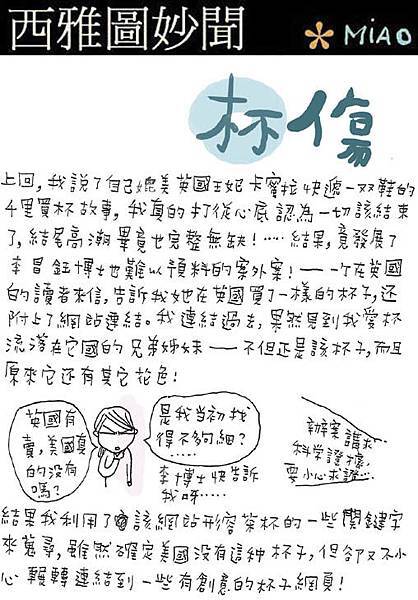 西雅圖妙聞 * MiAO
杯傷
上回,我說了自己媲美英國王妃卡蜜拉快遞一双鞋的
千里買杯故事,我真的打從心底認為一切該結束
了,結尾高潮畢竟也完整無缺!‥‥‥結果,竟發展了
李昌鈺博士也難以預料的案外案!——一個在英國
的讀者來信,告訴我她在英國買了一樣的杯子,还
附上了網站連結。我連結過去,果然見到我愛杯
流落在它國的兄弟姊妹——不但正是該杯子,而且
原來它还有其它花色!
英國有
賣,美國真
的没有
嗎?
是我当初找
得不夠細?
‥‥‥
李博士快告訴
我呀‥‥‥
辦案講求
科學證據,
要小心求證‥‥
結果我利用了該網站形容茶杯的一些関鍵字
來蒐尋,雖然確定美國没有這种杯子,但卻又不小
心輾轉連結到一些有創意的杯子網頁!